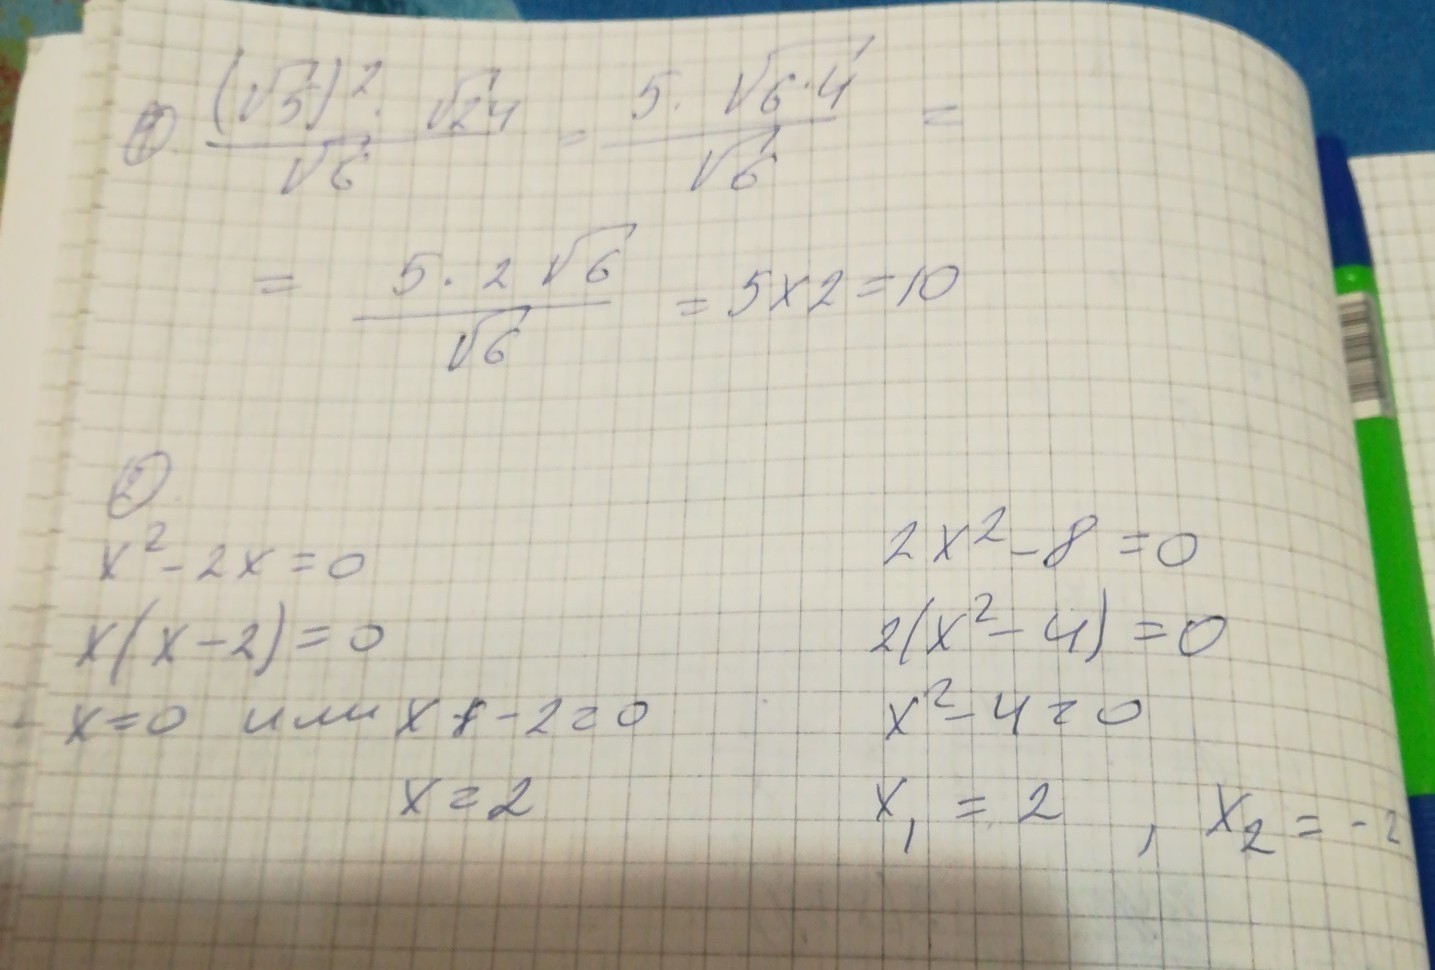 ① (√5)² · √24 / √6 = 5 · √6·4 / √6 =
= 5 · 2 √6 / √6 = 5x2=10
②
x² - 2x = 0
x(x-2) = 0
x=0 или x - 2 = 0
x = 2
2x² - 8 = 0
2(x² - 4) = 0
x² - 4 = 0
x₁ = 2 , x₂ = -2